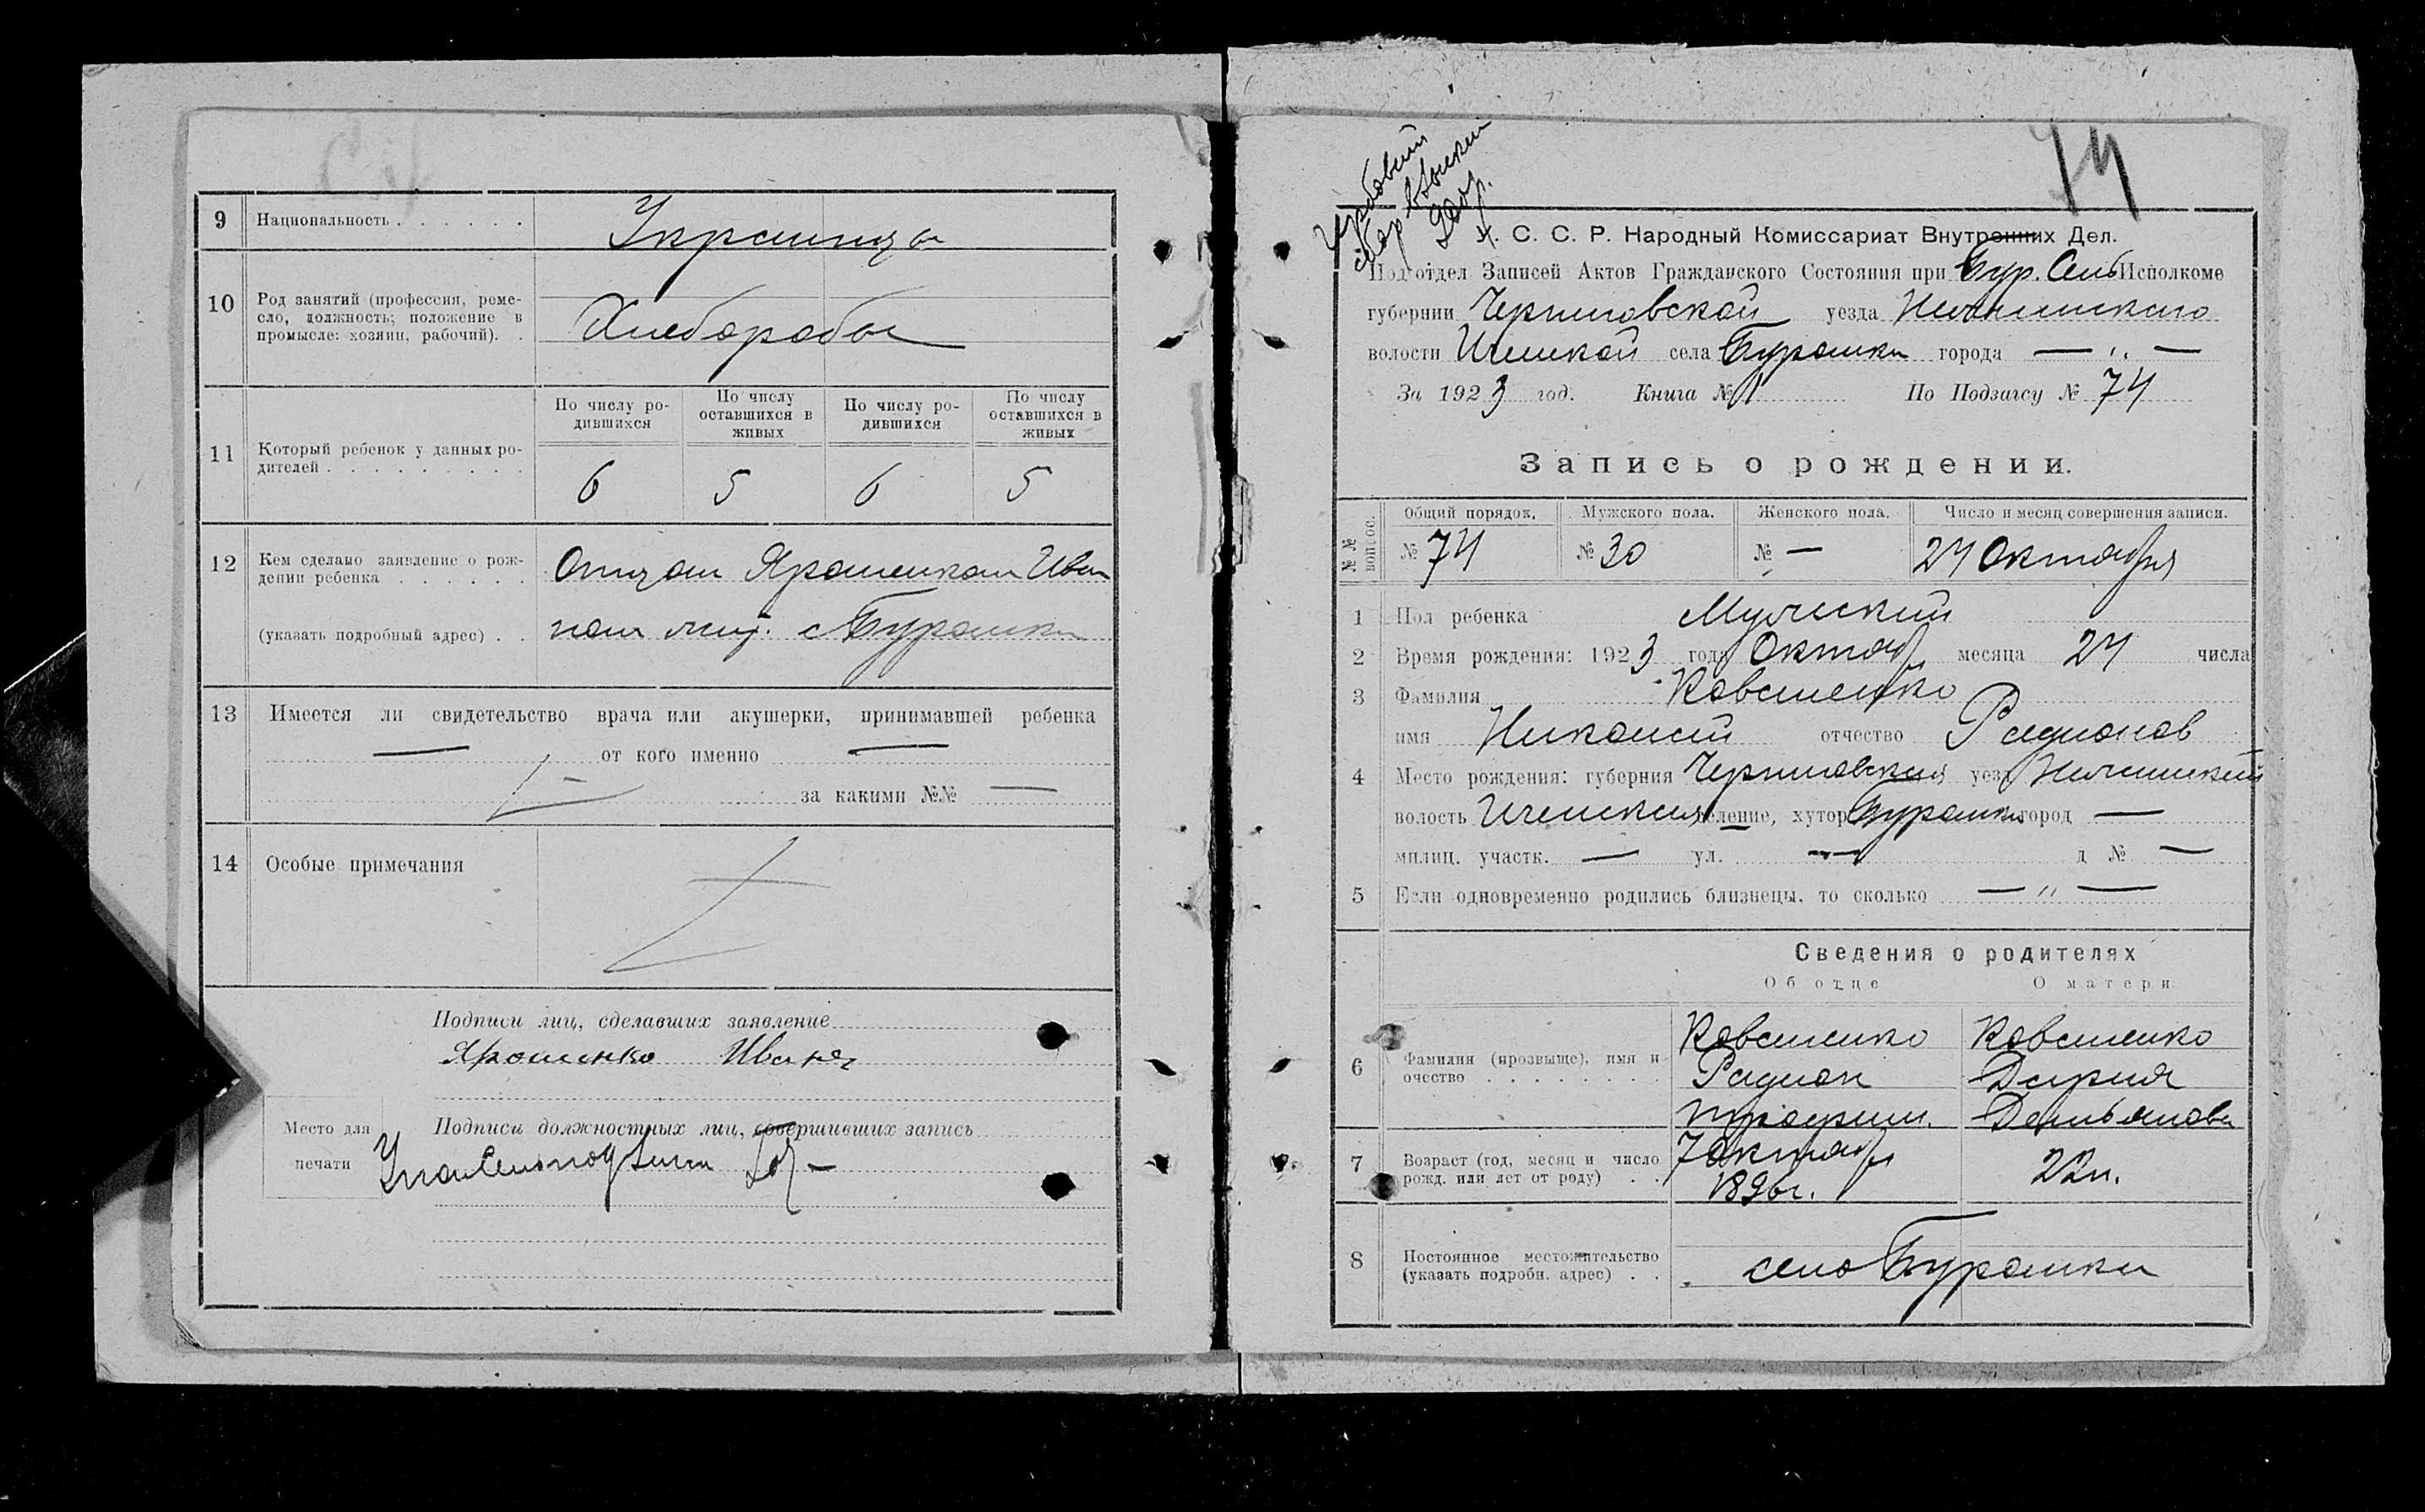 9 Национальность . . . . . . Украинцы
10 Род занятий (профессия, реме-
сло, должность; положение в
промысле: хозяин, рабочий). . Хлеборобы
По числу ро-
дившихся
По числу
оставшихся в
живых
По числу ро-
дившихся
По числу
оставшихся в
живых
11 Который ребенок у данных ро-
дителей . . . . . . . . .
6 5 6 5
12 Кем сделано заявление о рож-
дении ребенка . . . . . . Отцом Ярошенком Ива
(указать подробный адрес) . . ном с Буромки
13 Имеется ли свидетельство врача или акушерки, принимавшей ребенка
— от кого именно —
за какими №№ —
14 Особые примечания
Подписи лиц, сделавших заявление
Ярошенко Иван
Место для
печати
Подписи должностных лиц, совершивших запись
74
У. С. С. Р. Народный Комиссариат Внутренних Дел.
Подотдел Записей Актов Гражданского Состояния при Бур. Сель Исполкоме
губернии Черниговской уезда Нежинского
волости Иченской села Буромки города — „ —
За 1923 год. Книга № 1 По Подзагсу № 74
Запись о рождении.
№№ вопрос.
Общий порядок. Мужского пола. Женского пола. Число и месяц совершения записи.
№ 74 № 30 № — 24 Октября
1 Пол ребенка Мужский
2 Время рождения: 1923 года Октяб месяца 24 числа
3 Фамилия Ковшенко
имя Николай отчество Радионов
4 Место рождения: губерния Черниговская уезд Нежинский
волость Иченская селение, хутор Буромка город —
милиц. участк. — ул. — д № —
5 Если одновременно родились близнецы, то сколько — „ —
Сведения о родителях
Об отце О матери
6 Фамилия (прозвище), имя и
очество . . . . . . . .
Ковшенко Ковшенко
Радион Дария
Трофим. Демьянова
7 Возраст (год, месяц и число
рожд. или лет от роду) . .
7 Октяб
1896г. 22л.
8 Постоянное местожительство
(указать подробн. адрес) . . село Буромки